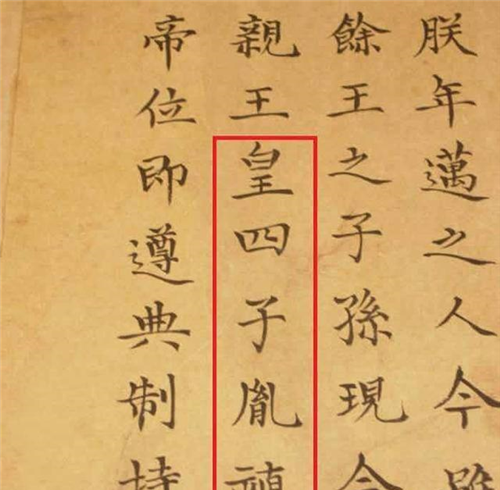 朕年邁之人今雖
餘王之子孫現今
親王皇四子胤
帝位即遵典制持